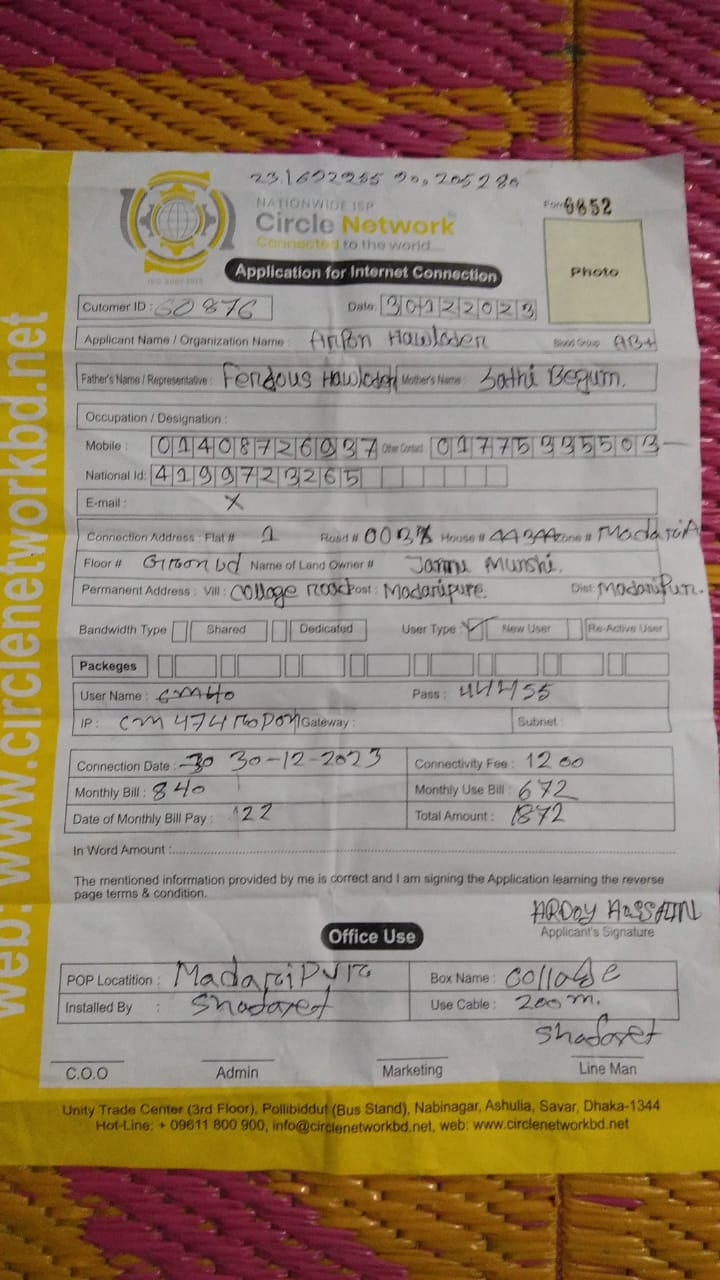 231692255 90, 205280
NATIONWIDE ISP
Circle Network
Connected to the world
Form 6852
Application for Internet Connection
Photo
Cutomer ID : 60876 Date: 30122023
Applicant Name / Organization Name : Arpon Hawlader Blood Group AB+
Father's Name / Representative : Ferdous Hawlader Mother's Name : Sathi Begum.
Occupation / Designation :
Mobile : 01408726937 Other Contact 01775335503
National Id: 4199723265
E-mail : X
Connection Address : Flat # 1 Road # House # Zone #
Floor # Name of Land Owner # Munshi.
Permanent Address : Vill : College Road Post : Madaripure. Dist: Madaripur.
Bandwidth Type Shared Dedicated User Type : ✓ New User Re-Active User
Packeges
User Name : Pass : 444455
IP : Gateway : Subnet :
Connection Date : 30 30-12-2023 Connectivity Fee : 1200
Monthly Bill : 840 Monthly Use Bill : 672
Date of Monthly Bill Pay : 122 Total Amount : 1872
In Word Amount :
The mentioned information provided by me is correct and I am signing the Application learning the reverse
page terms & condition.
ARDOY HASSAIN
Applicant's Signature
Office Use
POP Locatition : Madaripur Box Name : Collage
Installed By : Shadaxet Use Cable : 200m.
Shadaxet
C.O.O Admin Marketing Line Man
Unity Trade Center (3rd Floor), Pollibiddut (Bus Stand), Nabinagar, Ashulia, Savar, Dhaka-1344
Hot-Line: + 09611 800 900, info@circlenetworkbd.net, web: www.circlenetworkbd.net
web: www.circlenetworkbd.net